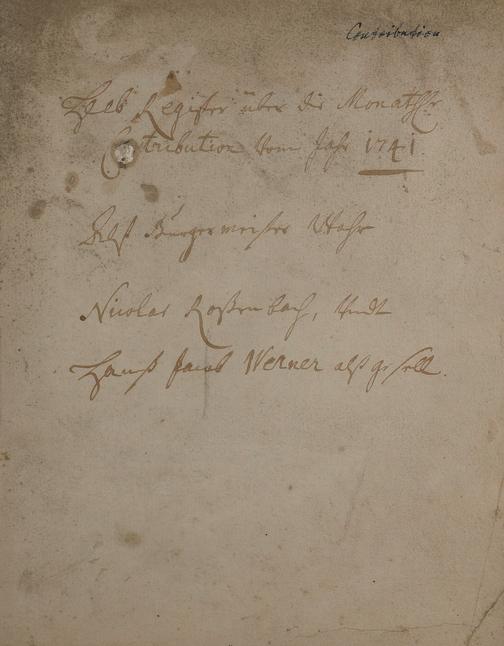 Contribution
Heb Register über die Monathl.
Contribution Vom Jahr 1741
Burgermeister Wahr
Nicolas Roßenbach, Undt
Hanß Jacob Werner alß gesell.